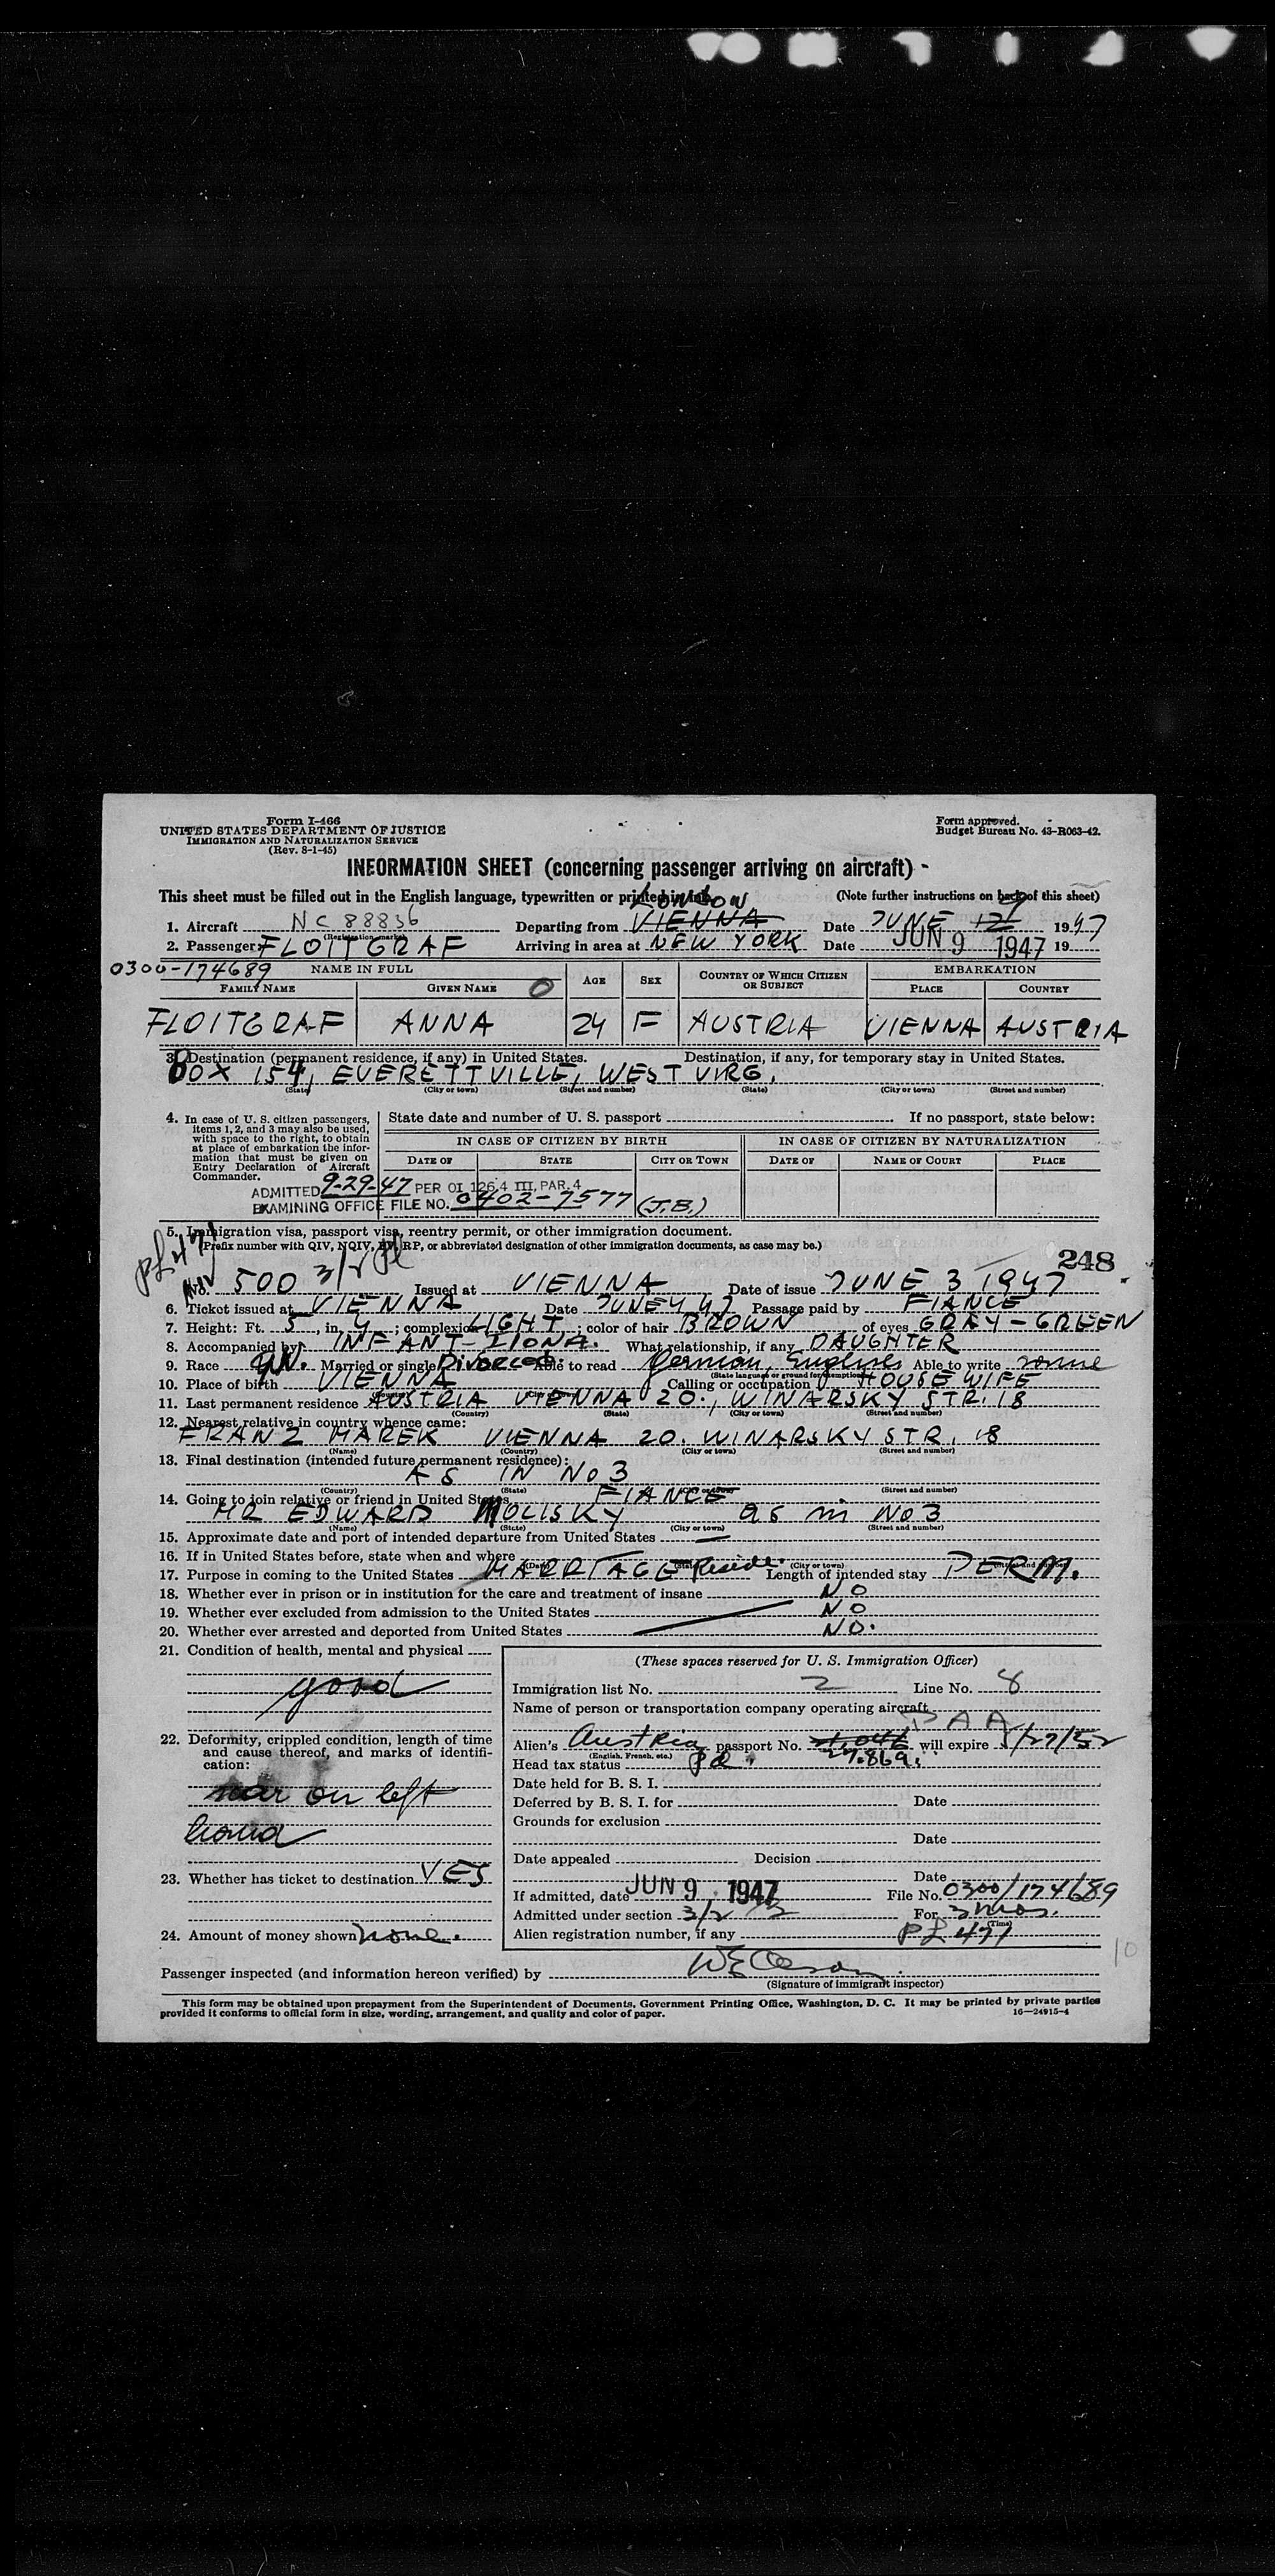 Form I-466
UNITED STATES DEPARTMENT OF JUSTICE
IMMIGRATION AND NATURALIZATION SERVICE
(Rev. 8-1-45)
Form approved.
Budget Bureau No. 43-R063-42.
INFORMATION SHEET (concerning passenger arriving on aircraft)
This sheet must be filled out in the English language, typewritten or printed in ink. (Note further instructions on back of this sheet)
LONDON
1. Aircraft NC 88836 Departing from VIENNA Date JUNE 7 1947
(Registration mark)
2. Passenger: FLOITGRAF Arriving in area at NEW YORK Date JUN 9 1947 19
0300-174689 NAME IN FULL AGE SEX COUNTRY OF WHICH CITIZEN OR SUBJECT EMBARKATION
FAMILY NAME GIVEN NAME 0 PLACE COUNTRY
FLOITGRAF ANNA 24 F AUSTRIA VIENNA AUSTRIA
3. Destination (permanent residence, if any) in United States. Destination, if any, for temporary stay in United States.
BOX 154, EVERETTVILLE, WEST VIRG.
(State) (City or town) (Street and number) (State) (City or town) (Street and number)
4. In case of U. S. citizen passengers, items 1, 2, and 3 may also be used, with space to the right, to obtain at place of embarkation the information that must be given on Entry Declaration of Aircraft Commander.
State date and number of U. S. passport If no passport, state below:
IN CASE OF CITIZEN BY BIRTH IN CASE OF CITIZEN BY NATURALIZATION
DATE OF STATE CITY OR TOWN DATE OF NAME OF COURT PLACE
ADMITTED 9-29-47 PER OI 126.4 III, PAR. 4
EXAMINING OFFICE FILE NO. 0402-7577 (J.B.)
5. Immigration visa, passport visa, reentry permit, or other immigration document.
(Prefix number with QIV, NQIV, PV, RP, or abbreviated designation of other immigration documents, as case may be.)
PL 471
248
No. 500 3/2 PL Issued at VIENNA Date of issue JUNE 3 1947
6. Ticket issued at VIENNA Date JUNE 4 47 Passage paid by FIANCE
7. Height: Ft. 5, in. 4; complexion LIGHT; color of hair BROWN of eyes GRAY-GREEN
8. Accompanied by INFANT-ILONA. What relationship, if any DAUGHTER
9. Race Married or single Divorced. Able to read German, English Able to write same
(State language or ground for exemption)
10. Place of birth VIENNA Calling or occupation HOUSEWIFE
(Country) (City or town)
11. Last permanent residence AUSTRIA VIENNA 20., WINARSKY STR. 18
(Country) (State) (City or town) (Street and number)
12. Nearest relative in country whence came:
FRANZ MAREK VIENNA 20. WINARSKY STR. 18
(Name) (Country) (City or town) (Street and number)
13. Final destination (intended future permanent residence):
AS IN No 3
(Country) (State) (City or town) (Street and number)
14. Going to join relative or friend in United States FIANCE
MR EDWARD MOLISKY as in No 3
(Name) (State) (City or town) (Street and number)
15. Approximate date and port of intended departure from United States —
16. If in United States before, state when and where
(Date) (State) (City or town) (Street and number)
17. Purpose in coming to the United States MARRIAGE Reside. Length of intended stay PERM.
18. Whether ever in prison or in institution for the care and treatment of insane NO
19. Whether ever excluded from admission to the United States NO
20. Whether ever arrested and deported from United States NO.
21. Condition of health, mental and physical
good
22. Deformity, crippled condition, length of time and cause thereof, and marks of identification:
scar on left
hand
23. Whether has ticket to destination YES
24. Amount of money shown none.
(These spaces reserved for U. S. Immigration Officer)
Immigration list No. 2 Line No. 8
Name of person or transportation company operating aircraft
PAA
Alien's Austria passport No. 27.869. will expire 5/27/52
(English, French, etc.)
Head tax status pd.
Date held for B. S. I.
Deferred by B. S. I. for Date
Grounds for exclusion
Date
Date appealed Decision
Date
If admitted, date JUN 9 1947 File No. 0300/174689
Admitted under section 3/2 For 3 mos.
(Time)
Alien registration number, if any PL 471
10
Passenger inspected (and information hereon verified) by
(Signature of immigrant inspector)
This form may be obtained upon prepayment from the Superintendent of Documents, Government Printing Office, Washington, D. C. It may be printed by private parties
provided it conforms to official form in size, wording, arrangement, and quality and color of paper. 16—24915-4